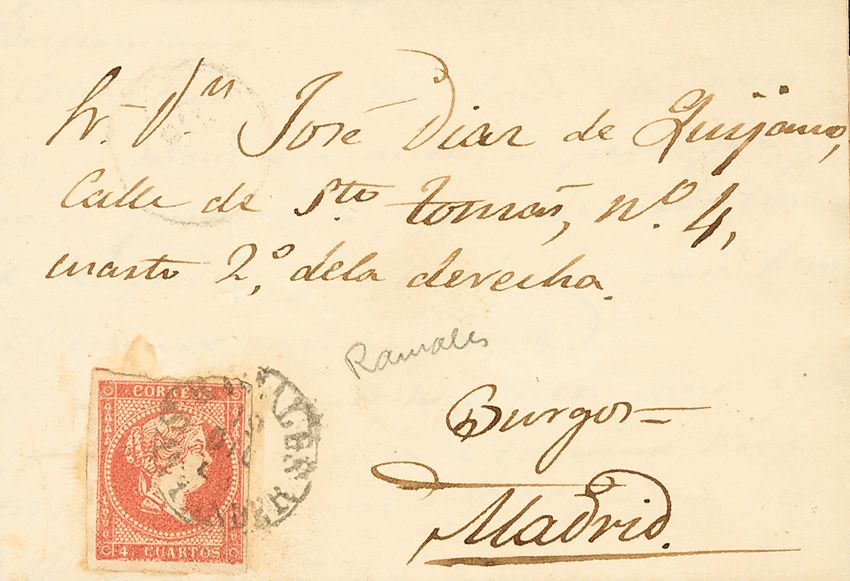 Sr. Dn José Diaz de Quijano,
Calle de Sto. Tomás, nº. 4,
cuarto 2º. dela derecha.
Ramales
Burgos
Madrid.
CORREOS
4 CUARTOS